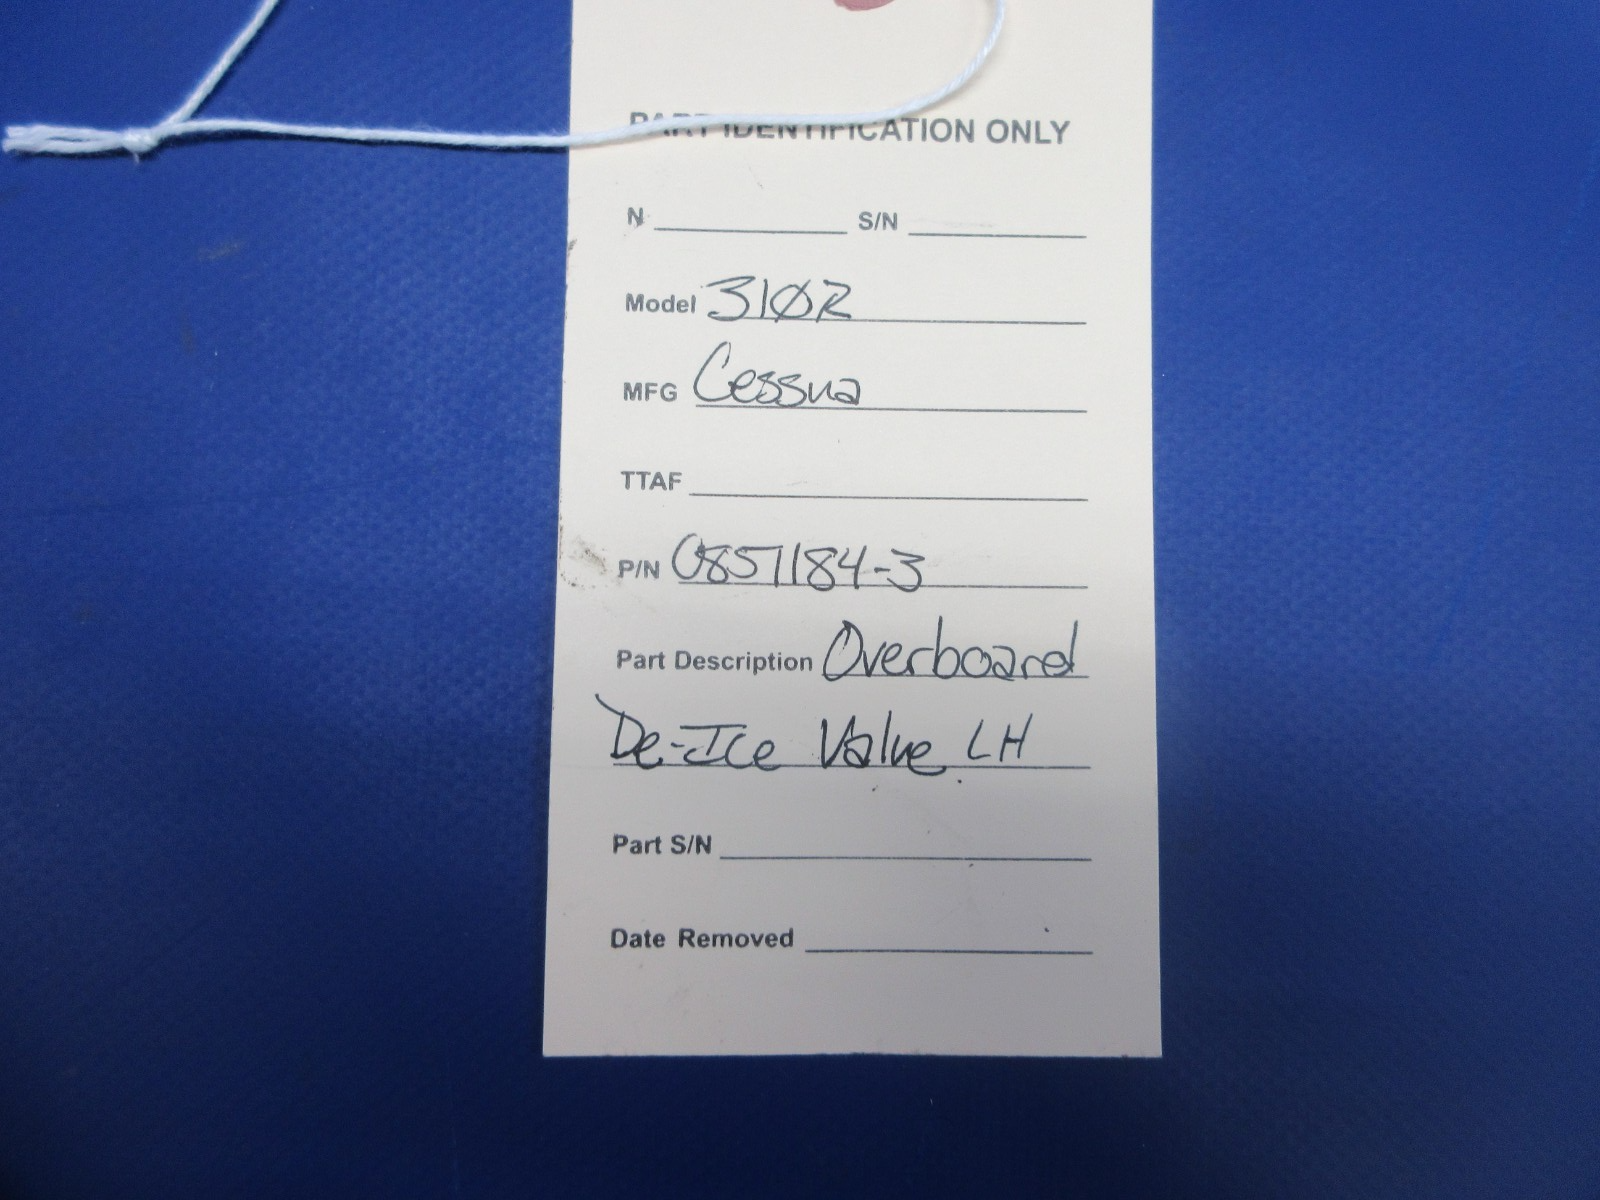 PART IDENTIFICATION ONLY
N S/N
Model 310R
MFG Cessna
TTAF
P/N 0857184-3
Part Description Overboard
De-Ice Valve LH
Part S/N
Date Removed